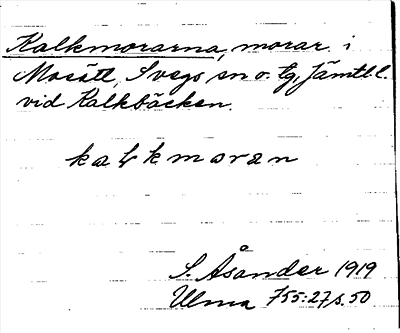 Kalkmorarna, morar i
Mosätt, Svegs sn o. tg, Jämtl. l.
vid Kalkbäcken.
kalkmoran
S. Åsander 1919
Ulma 755:27 s. 50